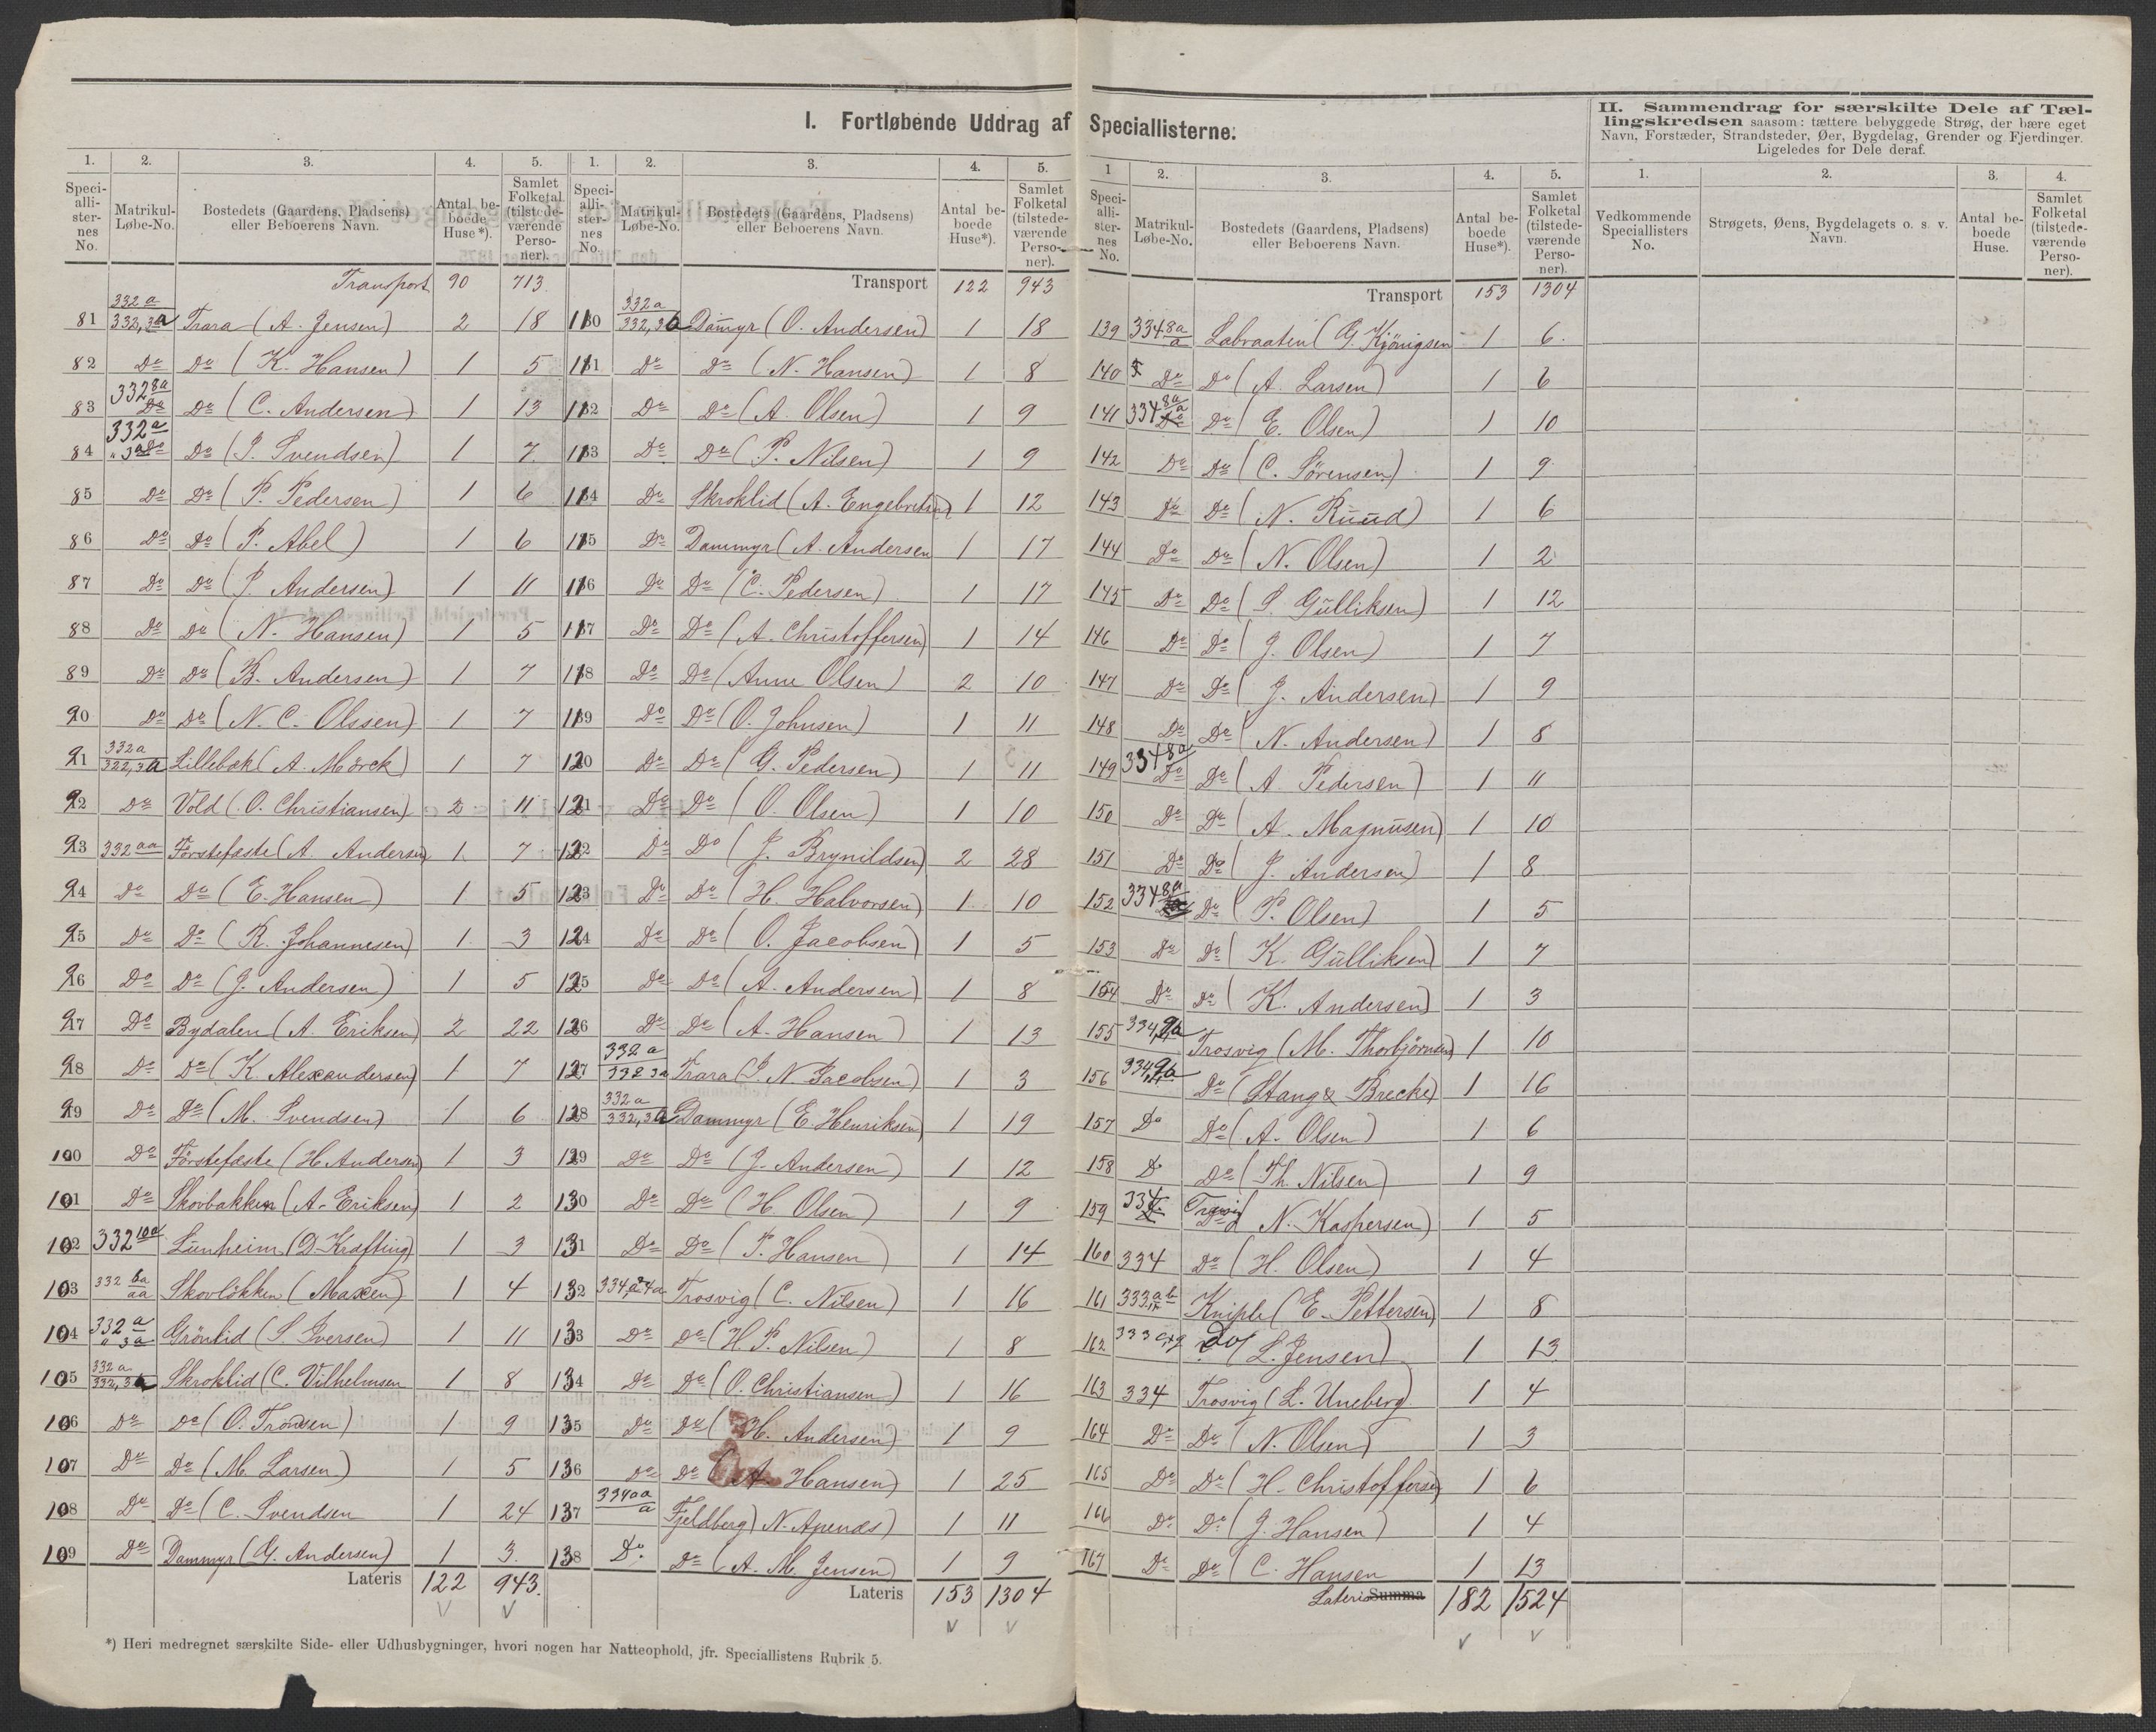 I. Fortløbende Uddrag af Speciallisterne.
1. 2. 3. 4. 5.
Speciallisternes No. Matrikul-Løbe-No. Bostedets (Gaardens, Pladsens) eller Beboerens Navn. Antal beboede Huse*). Samlet Folketal (tilstedeværende Personer).
Transport 90 713
81 332 a 332,3a Trara (A. Jensen) 2 18
82 Do Do (K. Hansen) 1 5
83 332 8a Do Do (C. Andersen) 1 13
84 332 a " 3a Do Do (J. Svendsen) 1 7
85 Do Do (P. Pedersen) 1 6
86 Do Do (P. Abel) 1 6
87 Do Do (P. Andersen) 1 11
88 Do Do (N. Hansen) 1 5
89 Do Do (B. Andersen) 1 7
90 Do Do (N. C. Olssen) 1 7
91 332 a 322,3a Lillebæk (A. Mörck) 1 7
92 Do Vold (O. Christiansen) 2 11
93 332 aa Förstefæste (A. Andersen) 1 7
94 Do Do (E. Hansen) 1 5
95 Do Do (R. Johannesen) 1 3
96 Do Do (J. Andersen) 1 5
97 Do Bydalen (A. Eriksen) 2 22
98 Do Do (K. Alexandersen) 1 7
99 Do Do (M. Svendsen) 1 6
100 Do Förstefæste (H. Andersen) 1 3
101 Do Skovbakken (A. Eriksen) 1 2
102 332 10a Lunheim (D. Krafting) 1 3
103 332 ba aa Skovlökken (Maxen) 1 4
104 332 a " 3a Grönlid (S. Iversen) 1 11
105 332 a 332,3a Skroklid (C. Vilhelmsen 1 8
106 Do Do (O. Tronsen) 1 9
107 Do Do (M. Larsen) 1 5
108 Do Do (C. Svendsen 1 24
109 Do Dammyr (G. Andersen) 1 3
Lateris 122 943.
*) Heri medregnet særskilte Side- eller Udhusbygninger, hvori nogen har Natteophold, jfr. Speciallistens Rubrik 5.
1. 2. 3. 4. 5.
Speciallisternes No. Matrikul-Løbe-No. Bostedets (Gaardens, Pladsens) eller Beboerens Navn. Antal beboede Huse*). Samlet Folketal (tilstedeværende Personer).
Transport 122 943
110 332a 332,3a Dammyr (O. Andersen) 1 18
111 Do Do (N. Hansen) 1 8
112 Do Do (A. Olsen) 1 9
113 Do Do (P. Nilsen) 1 9
114 Do Skroklid (A. Engebretsen) 1 12
115 Do Dammyr (A. Andersen 1 17
116 Do Do (C. Pedersen) 1 17
117 Do Do (A. Christoffersen) 1 14
118 Do Do (Anne Olsen) 2 10
119 Do Do (O. Johnsen) 1 11
120 Do Do (G. Pedersen) 1 11
121 Do Do (O. Olsen) 1 10
122 Do Do (J. Brynildsen) 2 28
123 Do Do (H. Halvorsen) 1 10
124 Do Do (O. Jacobsen) 1 5
125 Do Do (A. Andersen) 1 8
126 Do Do (A. Hansen) 1 13
127 332 a 332 3a Trara (J. N. Jacobsen) 1 3
128 332 a 332,3a Dammyr (E. Henriksen) 1 19
129 Do Do (J. Andersen) 1 12
130 Do Do (H. Olsen) 1 9
131 Do Do (P. Hansen) 1 14
132 334, a 4a Trosvig (C. Nilsen) 1 16
133 Do Do (H. P. Nilsen) 1 8
134 Do Do (O. Christiansen) 1 16
135 Do Do (H. Andersen) 1 9
136 Do Do (A. Hansen) 1 25
137 334 aa a Fjeldberg) N. Apenæs) 1 11
138 Do Do (A. M. Jensen) 1 9
Lateris 153 1304
1 2. 3. 4. 5.
Speciallisternes No. Matrikul-Løbe-No. Bostedets (Gaardens, Pladsens) eller Beboerens Navn. Antal beboede Huse*). Samlet Folketal (tilstedeværende Personer).
Transport 153 1304
139 334 8a a Labraaten (G. Kjönigsen 1 6
140 Do Do (A. Larsen) 1 6
141 334 8a a Do Do (E. Olsen) 1 10
142 Do Do (C. Sörensen) 1 9
143 Do Do (N. Ruud) 1 6
144 Do Do (N. Olsen) 1 2
145 Do Do (S. Gulliksen) 1 12
146 Do Do (J. Olsen) 1 7
147 Do Do (J. Andersen) 1 9
148 Do Do (N. Andersen) 1 8
149 334 8a Do Do (A. Pedersen) 1 11
150 Do Do (A. Magnusen) 1 10
151 Do Do (J. Andersen) 1 8
152 334 8a Do (P. Olsen) 1 5
153 Do Do (K. Gulliksen) 1 7
154 Do Do (K. Andersen) 1 3
155 334, 9a Trosvig (M. Thorbjörnsen) 1 10
156 334, 9a Do (Stang & Brecke) 1 16
157 Do Do (A. Olsen) 1 6
158 D Do (Th. Nilsen) 1 9
159 334 Trosvig Do N. Kaspersen) 1 5
160 334 Do (H. Olsen) 1 4
161 333 ab Kniple (E. Pettersen) 1 8
162 333 Do (L. Jensen) 1 13
163 334 Trosvig (L. Uneberg) 1 4
164 Do Do (N. Olsen) 1 3
165 Do Do (H. Christoffersen) 1 6
166 Do Do (J. Hansen) 1 4
167 Do Do (C. Hansen 1 13
Lateris Summa 182 1524
II. Sammendrag for særskilte Dele af Tæl-
lingskredsen saasom: tættere bebyggede Strøg, der bære eget
Navn, Forstæder, Strandsteder, Øer, Bygdelag, Grender og Fjerdinger.
Ligeledes for Dele deraf.
1. 2. 3. 4.
Vedkommende Speciallisters No. Strøgets, Øens, Bygdelagets o. s. v. Navn. Antal beboede Huse. Samlet Folketal (tilstedeværende Personer).